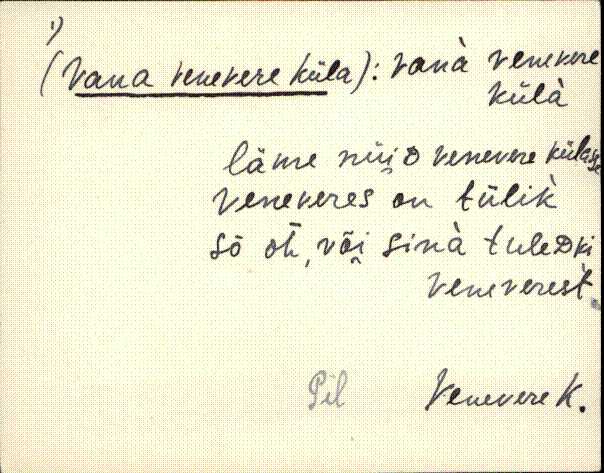 1)
(Vana Venevere küla): vanà venevere
külà
läme nüiD venevere külasse
veneveres on tülik̀
sō ot̄, või sinà tuleDki
veneverest̀
Pil Venevere k.